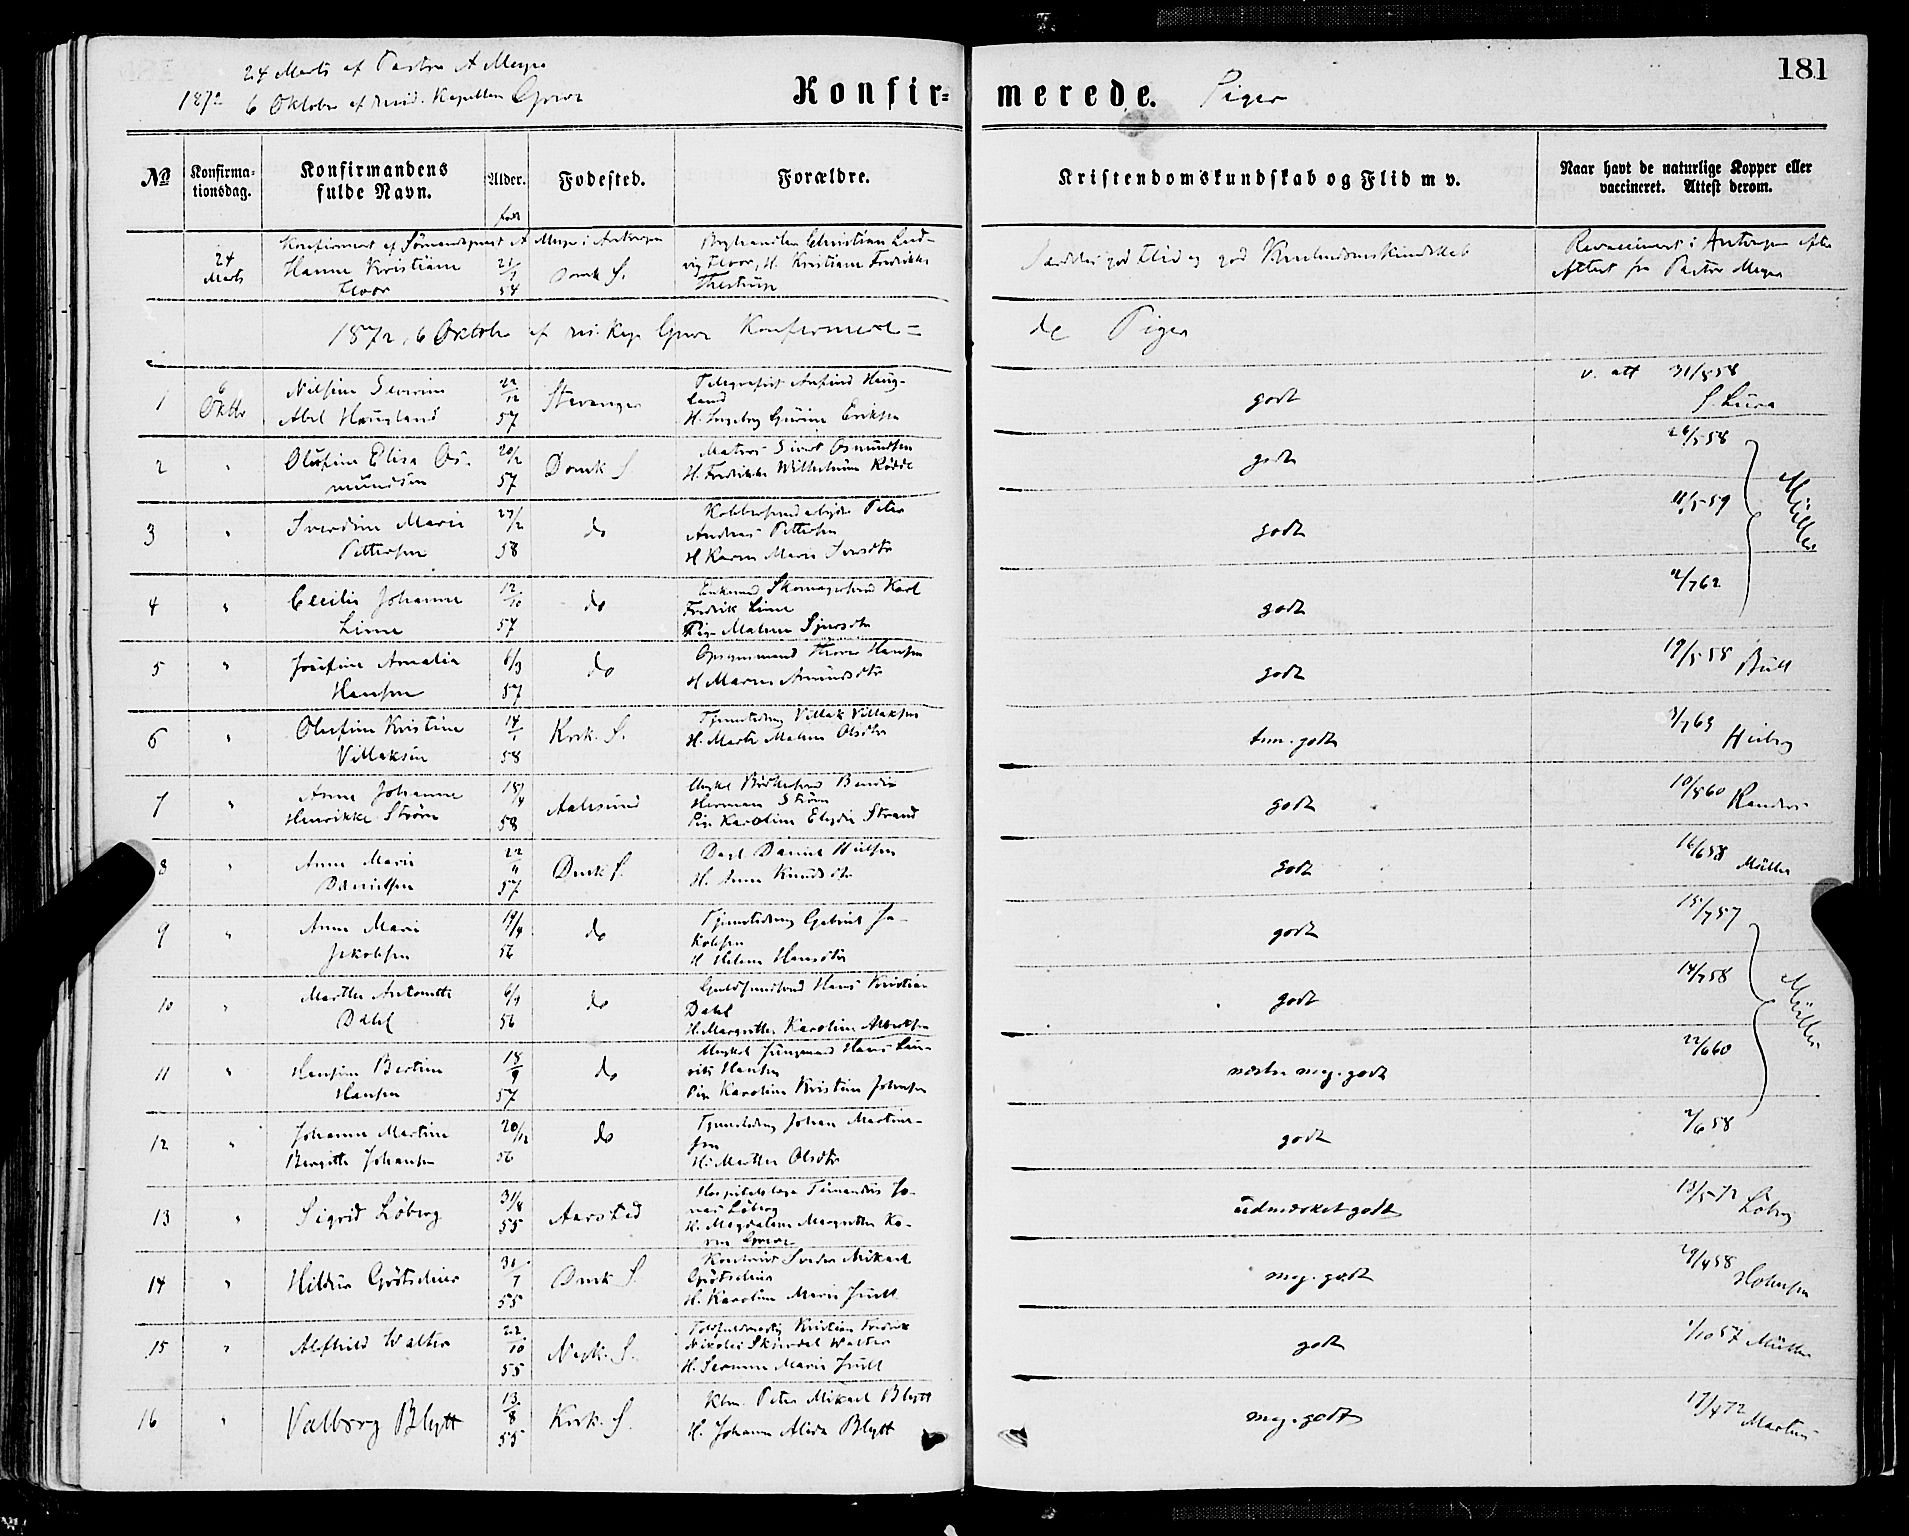 24 Marts af Pastor A Meyer
1872 6 Oktober af resid. Kapellan Greve
Konfir= merede. Piger
181
No
Konfirma-
tionsdag.
Konfirmandens
fulde Navn.
Alder.
født
Fodested.
Forældre.
Kristendomskundskab og Flid m v.
Naar havt de naturlige Kopper eller
vaccineret. Attest derom.
Konfirmeret af Sømandspræst A Meyer i Antwerpen
24 Marts Hanna Kristiane Floor 21/9 54 Domk S.
Christian Lud-
vig Floor, H. Kristiane Fredrikke
Særdeles god Flid og god Kristendomskundskab
Revaccineret i Antwerpen efter
Attest fra Pastor Meyer
1872, 6 Oktober af res. Kap. Greve Konfirmere=
de Piger
1 6 Oktbr Nilsine Severine
Abel Haugland 22/12 57 Stavanger
Telegrafist Anfind Haug-
land
H. Ingeborg Eriksen
godt
v. att 31/8 58
S. Lura
2 " Olufine Elisa Os-
mundsen 20/2 57 Domk S
Matros Sivert Osmundsen
H. Fredrikke Wilhelmine Rødde
godt
26/5 58
3 " Marie
Pettersen 27/2 58 do
Peter
Andreas Pettersen
H Karen Marie
godt
11/5 59
Müller
4 " Cecilie Johanne
Lime 12/10 57 do
Skomagersvend Karl
Fredrik Lime
Pige Malene Sjursdtr
godt
2/7 62
5 " Josefine Amalia
Hansen 6/3 57 do
Hansen
H Maren Amundsdtr
godt
19/5 58 Bull
6 " Olufine Kristine
Villaksen 14/1 58 Kork. S.
Tjenestedreng Villak Villaksen
H. Marte Malene Olsdtr
tem. godt
3/7 63 Heiberg
7 " Anne Johanne
Henrikke Strøm 15/4 58 Aalesund
Herman Strøm
Pige Karoline Strand
godt
10/8 60 Randers
8 " Anne Marie
Danielsen 22/11 57 Domk S.
Dagl Daniel
H. Anne Knudsdtr
godt
16/6 58 Müller
9 " Anne Marie
Jakobsen 14/4 56 do
Tjenestedreng Gabriel Ja-
kobsen
H Helene Hansdtr
godt
15/7 57
10 " Marthe Antonette
Dahl 6/9 56 do
Guldsmedsvend Hans Kristian
Dahl
H. Margrethe Karoline Albertsen
godt
14/7 58
Müller
11 " Hansine Bertine
Hansen 18/9 57 do
Ungkarl Jungmand Hans Lau-
rits Hansen
Pige Karoline Kristine Johnsen
næsten meg. godt
22/6 60
12 " Johanne Martine
Bergitte Johansen 20/12 56 do
Tjenestedreng Johan Martine-
sen
H. Marthe Olsdtr
godt
2/6 58
13 " Sigrid Løberg 31/8 55 Aarstad
Hospitalslæge Jo-
nas Løberg
H. Magdalene Margrethe Ka-
ren Greve
udmærket godt
13/5 72 Løberg
14 " Hildur Grøtschier 31/7 55 Domk S.
Mikael
Grøtschier
H. Karoline Marie Juell
meg. godt
29/4 58
15 " Alfhild Walter 22/10 55 Nyk. S.
Kristian Fredrik
Nikolai Walter
H. Marie Juell
godt
1/10 57 Müller
16 " Valborg Blytt 13/8 55 Kork. S.
Kbm. Peter Mikael Blytt
H. Johanna Alida Blytt
meg. godt
17/4 72 Martens